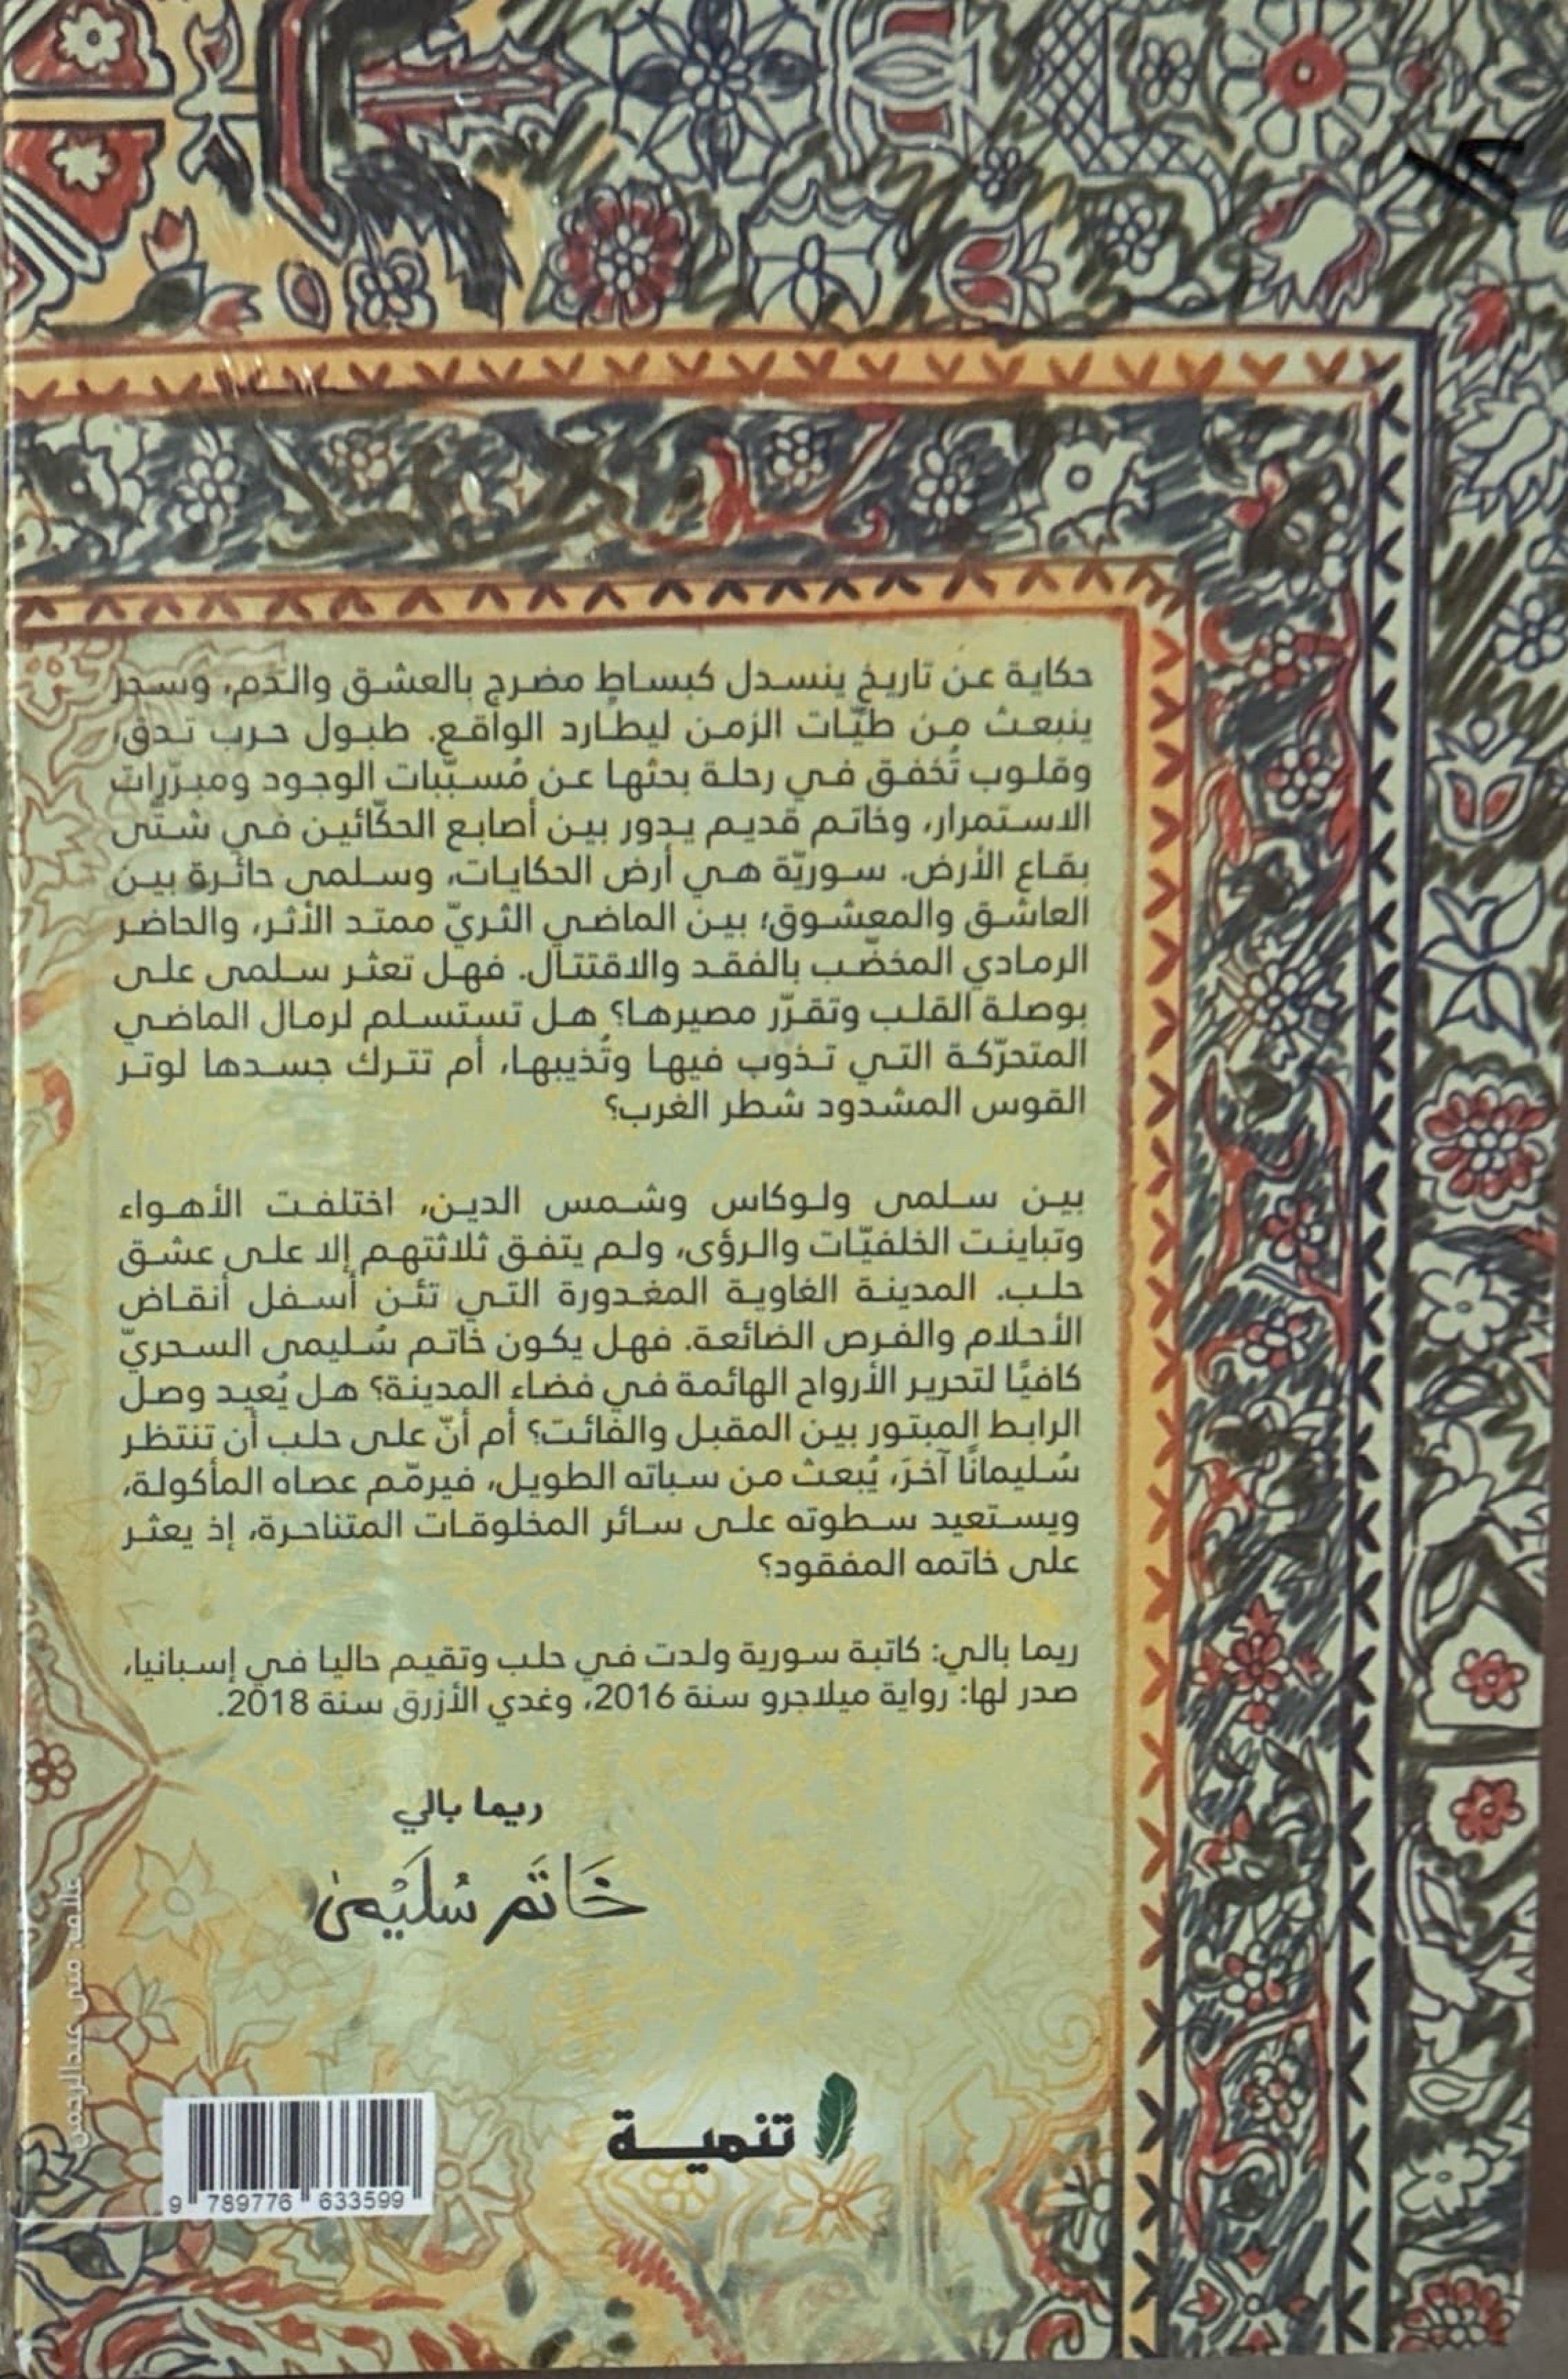 حكاية عن تاريخ ينسدل كبساطٍ مضرج بالعشق والدم، وسحر
ينبعث من طيّات الزمن ليطارد الواقع. طبول حرب تدق،
وقلوب تُخفق في رحلة بحثها عن مُسبّبات الوجود ومبرّرات
الاستمرار، وخاتم قديم يدور بين أصابع الحكّائين في شتّى
بقاع الأرض. سوريّة هي أرض الحكايات، وسلمى حائرة بين
العاشق والمعشوق؛ بين الماضي الثريّ ممتد الأثر، والحاضر
الرمادي المخضّب بالفقد والاقتتال. فهل تعثر سلمى على
بوصلة القلب وتقرّر مصيرها؟ هل تستسلم لرمال الماضي
المتحرّكة التي تذوب فيها وتُذيبها، أم تترك جسدها لوتر
القوس المشدود شطر الغرب؟
بين سلمى ولوكاس وشمس الدين، اختلفت الأهواء
وتباينت الخلفيّات والرؤى، ولم يتفق ثلاثتهم إلا على عشق
حلب. المدينة الغاوية المغدورة التي تئن أسفل أنقاض
الأحلام والفرص الضائعة. فهل يكون خاتم سُليمى السحريّ
كافيًا لتحرير الأرواح الهائمة في فضاء المدينة؟ هل يُعيد وصل
الرابط المبتور بين المقبل والفائت؟ أم أنّ على حلب أن تنتظر
سُليمانًا آخرَ، يُبعث من سباته الطويل، فيرمّم عصاه المأكولة،
ويستعيد سطوته على سائر المخلوقات المتناحرة، إذ يعثر
على خاتمه المفقود؟
ريما بالي: كاتبة سورية ولدت في حلب وتقيم حاليا في إسبانيا،
صدر لها: رواية ميلاجرو سنة 2016، وغدي الأزرق سنة 2018.
ريما بالي
خَاتَم سُلَيْمىٰ
غلاف: منى عبدالرحمن
تنمية
9 789776 633599